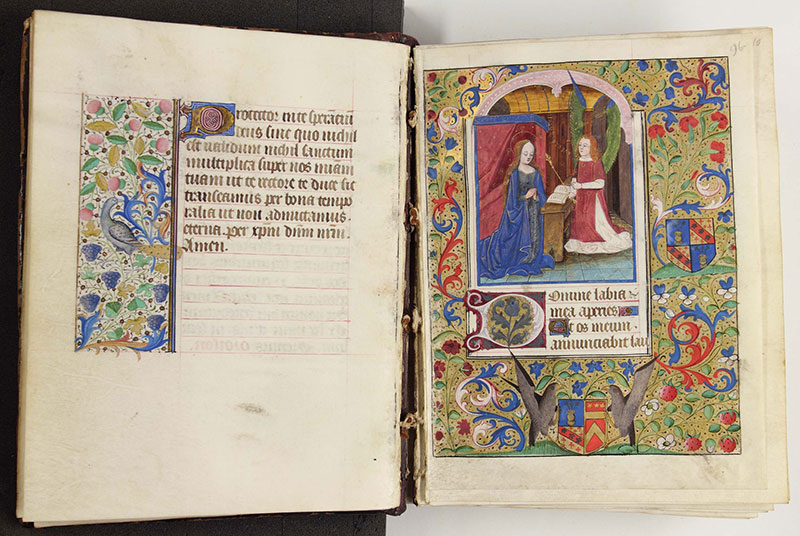 Protector in te sperātiū
deus sine quo nichil
est validum nichil sanctum
multiplica super nos miam
tuam ut te rectore te duce sic
transeamus per bona tempo
ralia ut non admittamus
eterna. per xpm dnm nrm
Amen.
96
Domine labia
mea aperies
Et os meum
annunciabit lau